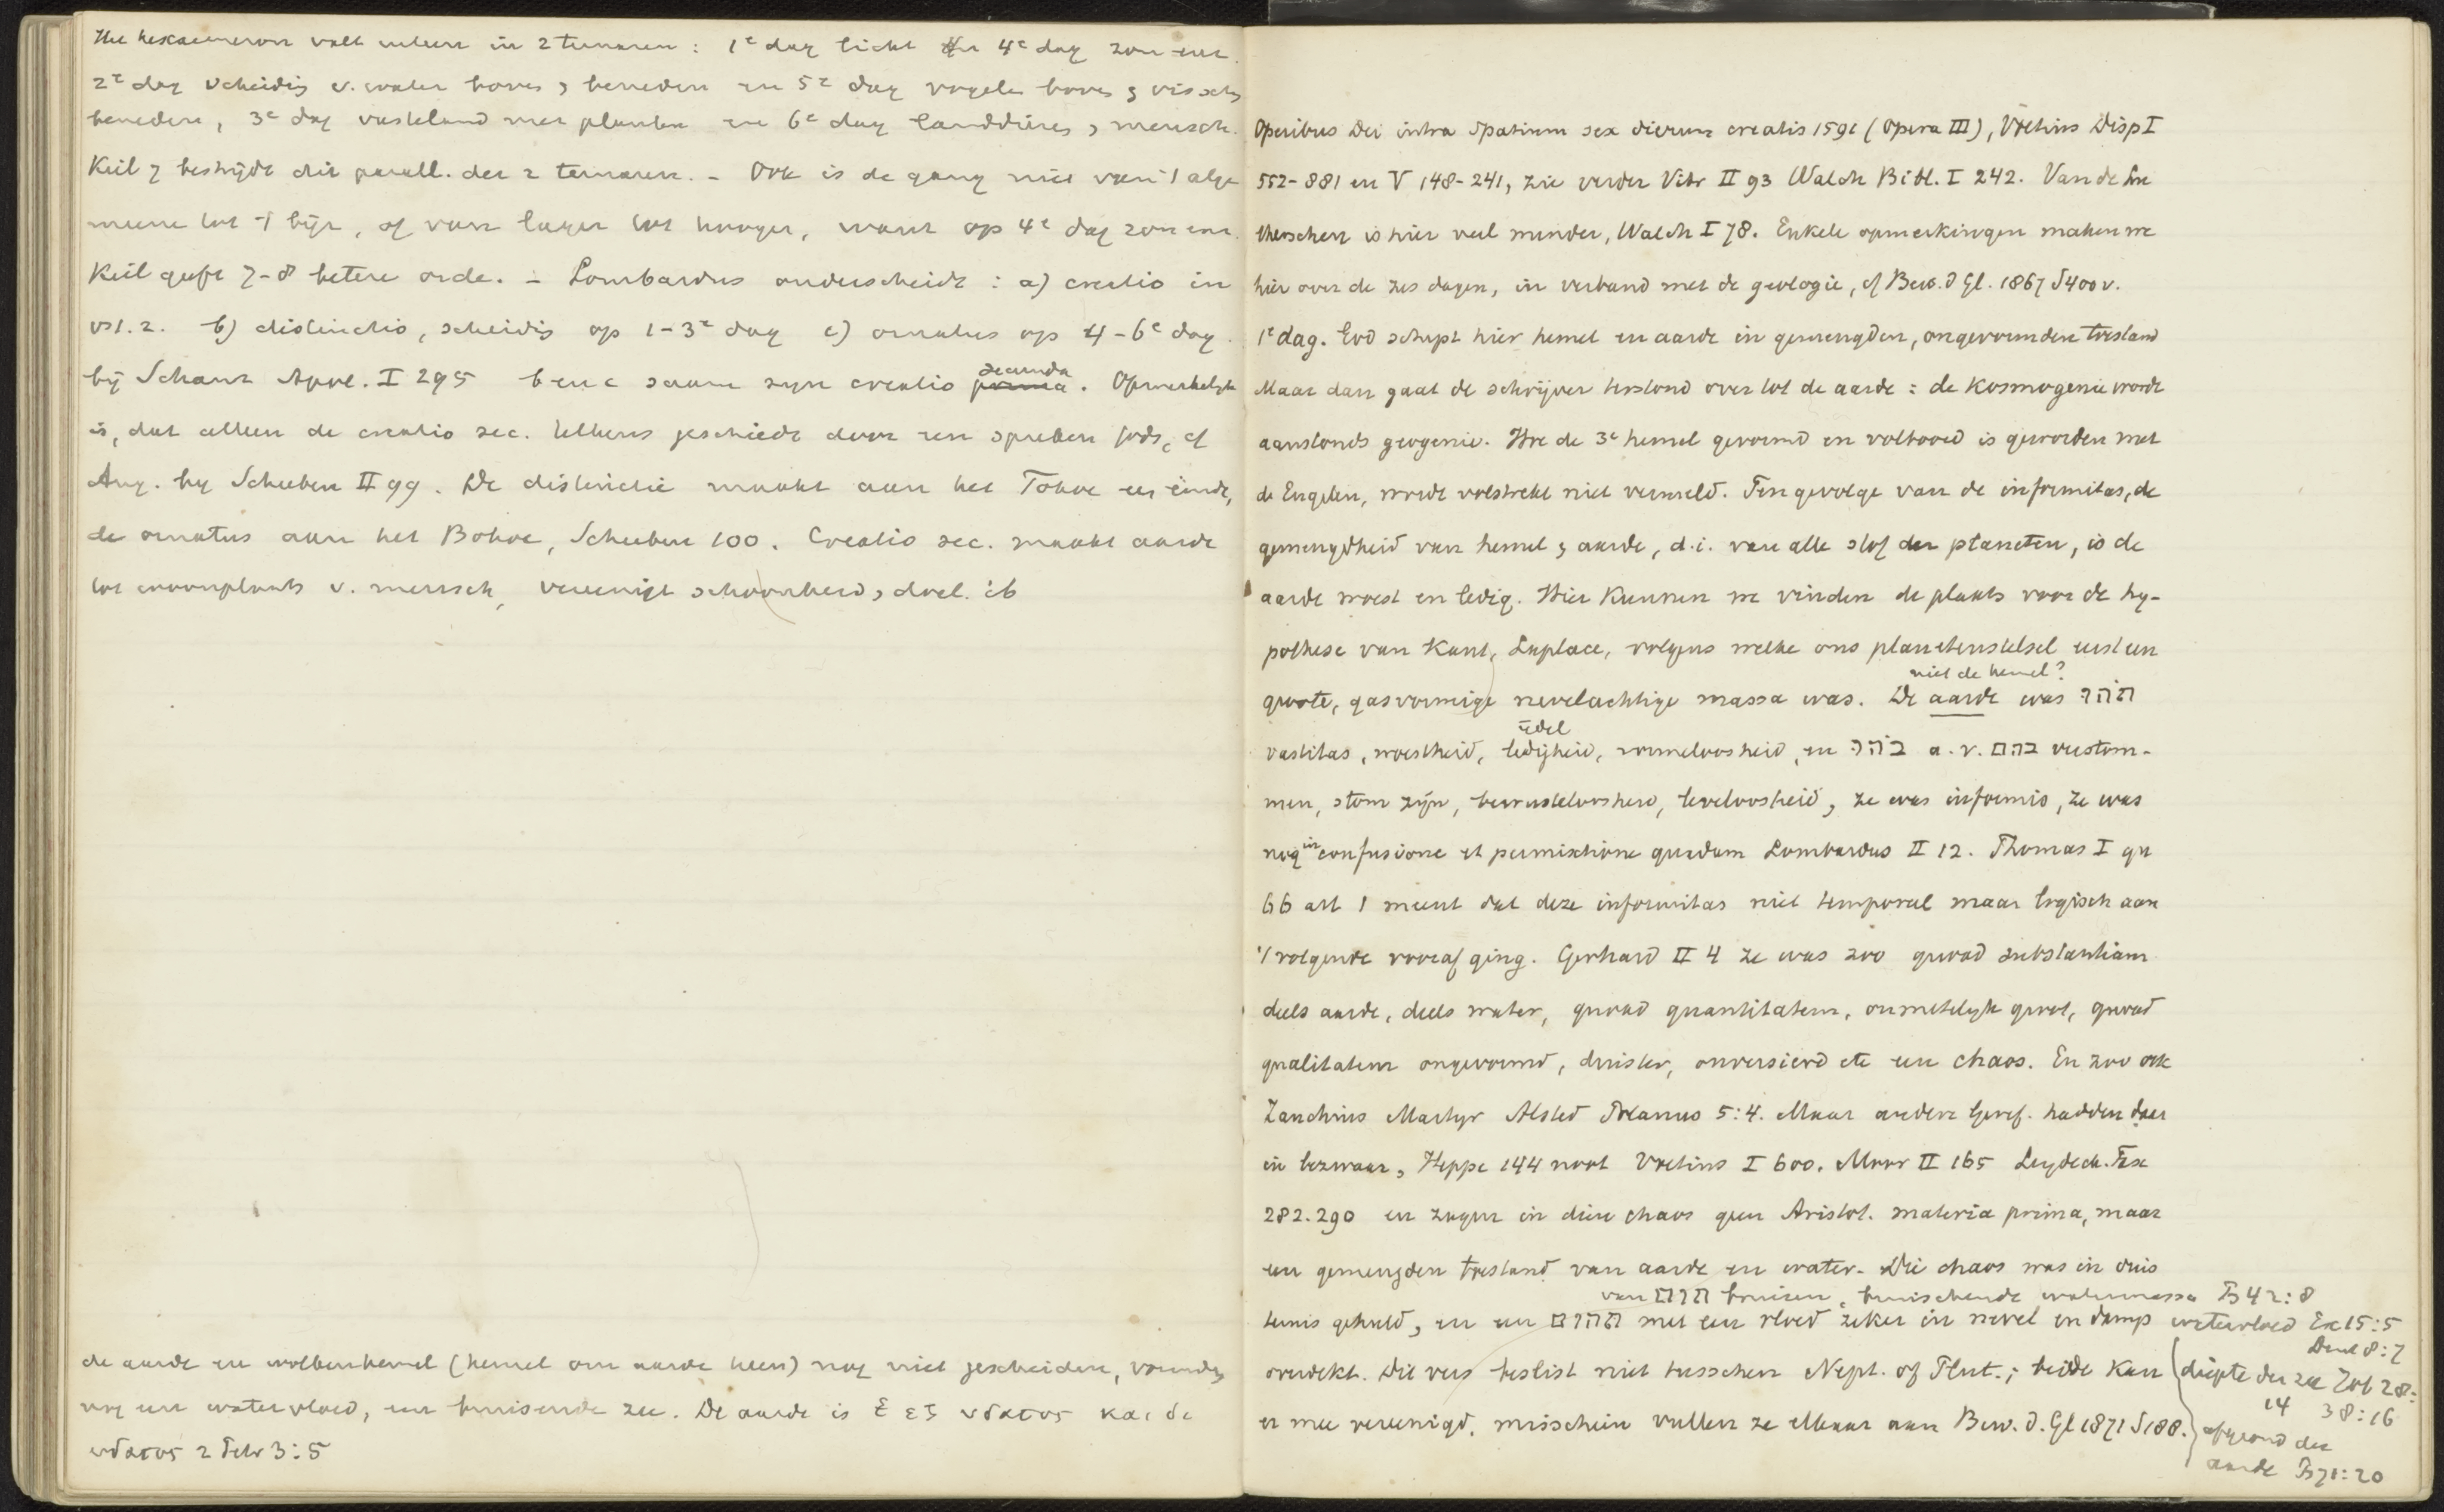 Het hexaemeron valt uiteen in 2 ternaren : 1e dag licht en 4e dag zon enz.
2e dag scheiding v. water boven & beneden en 5e dag vogels boven & visschen
beneden, 3e dag vasteland met planten en 6e dag landdieren & mensch.
Keil 7 bestrijdt dit parall. der 2 ternaren. – Ook is de gang niet van 't alge
meene tot 't bijz, of van lager tot hooger, want op 4e dag zon enz.
Keil geeft 7-8 betere orde. – Lombardus onderscheidt : a) creatio in
vs 1. 2. b) distinctio, scheiding op 1-3e dag c) ornatus op 4-6e dag.
bij Schanz Apol. I 295 b en c saam zijn creatio secunda. Opmerkelijk
is, dat alleen de creatio sec. telkens geschiedt door een spreken Gods, cf
Aug. by Scheeben II 99. De distinctie maakt aan het Tohoe een einde,
de ornatus aan het Bohoe, Scheeben 100. Creatio sec. maakt aarde
tot woonplaats v. mensch, vereenigt schoonheid & doel. ib
de aarde en wolkenhemel (hemel om aarde heen) nog niet gescheiden, vormden
nog een watervloed, een bruisende zee. De aarde is ἐξ ὑδατος και δι
ὑδατος 2 Petr 3:5
Operibus Dei intra spatium sex dierum creatis 1591 (Opera III), Voetius Disp I
552-881 en V 148-241, zie verder Vitr II 93 Walch Bibl. I 242. Van de Lu
therschen is hier veel minder, Walch I 78. Enkele opmerkingen maken we
hier over de zes dagen, in verband met de geologie, cf Bew. d Gl. 1867 S 400 v.
1e dag. God schept hier hemel en aarde in gemengden, ongevormden toestand
Maar dan gaat de schrijver terstond over tot de aarde : de kosmogenie wordt
aanstonds geogenie. Hoe de 3e hemel gevormd en voltooid is geworden met
de Engelen, wordt volstrekt niet vermeld. Ten gevolge van de informitas, de
gemengdheid van hemel & aarde, d.i. van alle stof der planeten, is de
aarde woest en ledig. Hier kunnen we vinden de plaats voor de hy-
pothese van Kant, Laplace, volgens welke ons planetenstelsel eerst een
niet de hemel?
groote, gasvormige nevelachtige massa was. De aarde was תהו
ijdel
vastitas, woestheid, ledigheid, vormeloosheid, en בהו a. v. בהם verstom-
men, stom zijn, bewusteloosheid, leveloosheid, ze was informis, ze was
nog in confusione et permixtione quadam Lombardus II 12. Thomas I qu
66 art 1 meent dat deze informitas niet temporeel maar logisch aan
't volgende vooraf ging. Gerhard II 4 ze was zoo quoad substantiam
deels aarde, deels water, quoad quantitatem, onmetelijk groot, quoad
qualitatem ongevormd, duister, onversierd etc een chaos. En zoo ook
Zanchius Martyr Alsted Polanus 5:4. Maar andere Geref. hadden daar
in bezwaar, Heppe 144 noot Voetius I 600. Moor II 165 Leydeck. Fax
282. 290 en zagen in dien chaos geen Aristot. materia prima, maar
een gemengden toestand van aarde en water. Die chaos was in duis
van הום bruisen, bruischende watermassa Ps 42:8
ternis gehuld, en een תהום met een vloed zeker in nevel en damp watervloed Ex 15:5
Deut 8:7
overdekt. Dit vers beslist niet tusschen Nept. of Plut.; beide kan diepte der zee Job 28:
14 38:16
er mee vereenigd, misschien vullen ze elkaar aan Bew. d. Gl 1871 S 188. afgrond der
aarde Ps 71:20